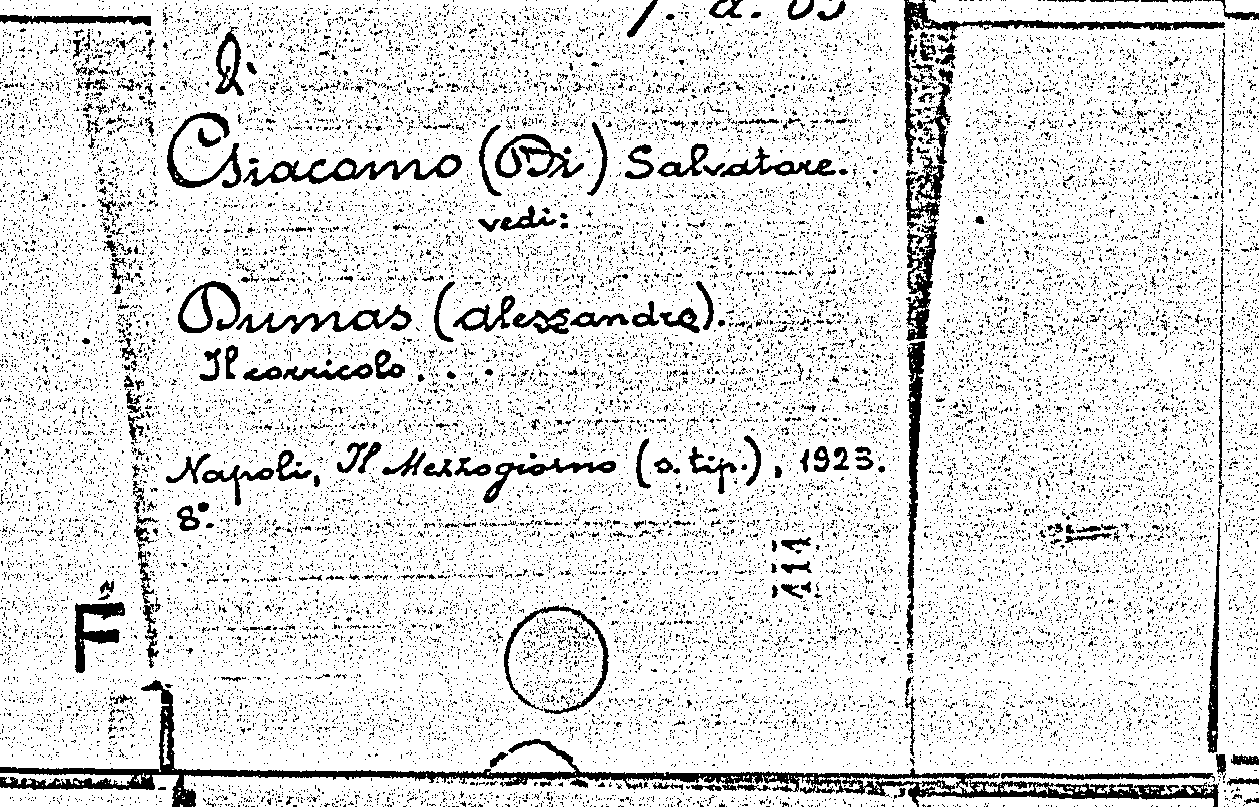 7. a. 63
D.
Giacomo (Di) Salvatore.
vedi:
Dumas (Alessandro).
Il corricolo . . .
Napoli, Il Mezzogiorno (s. tip.), 1923.
8°.
111
F